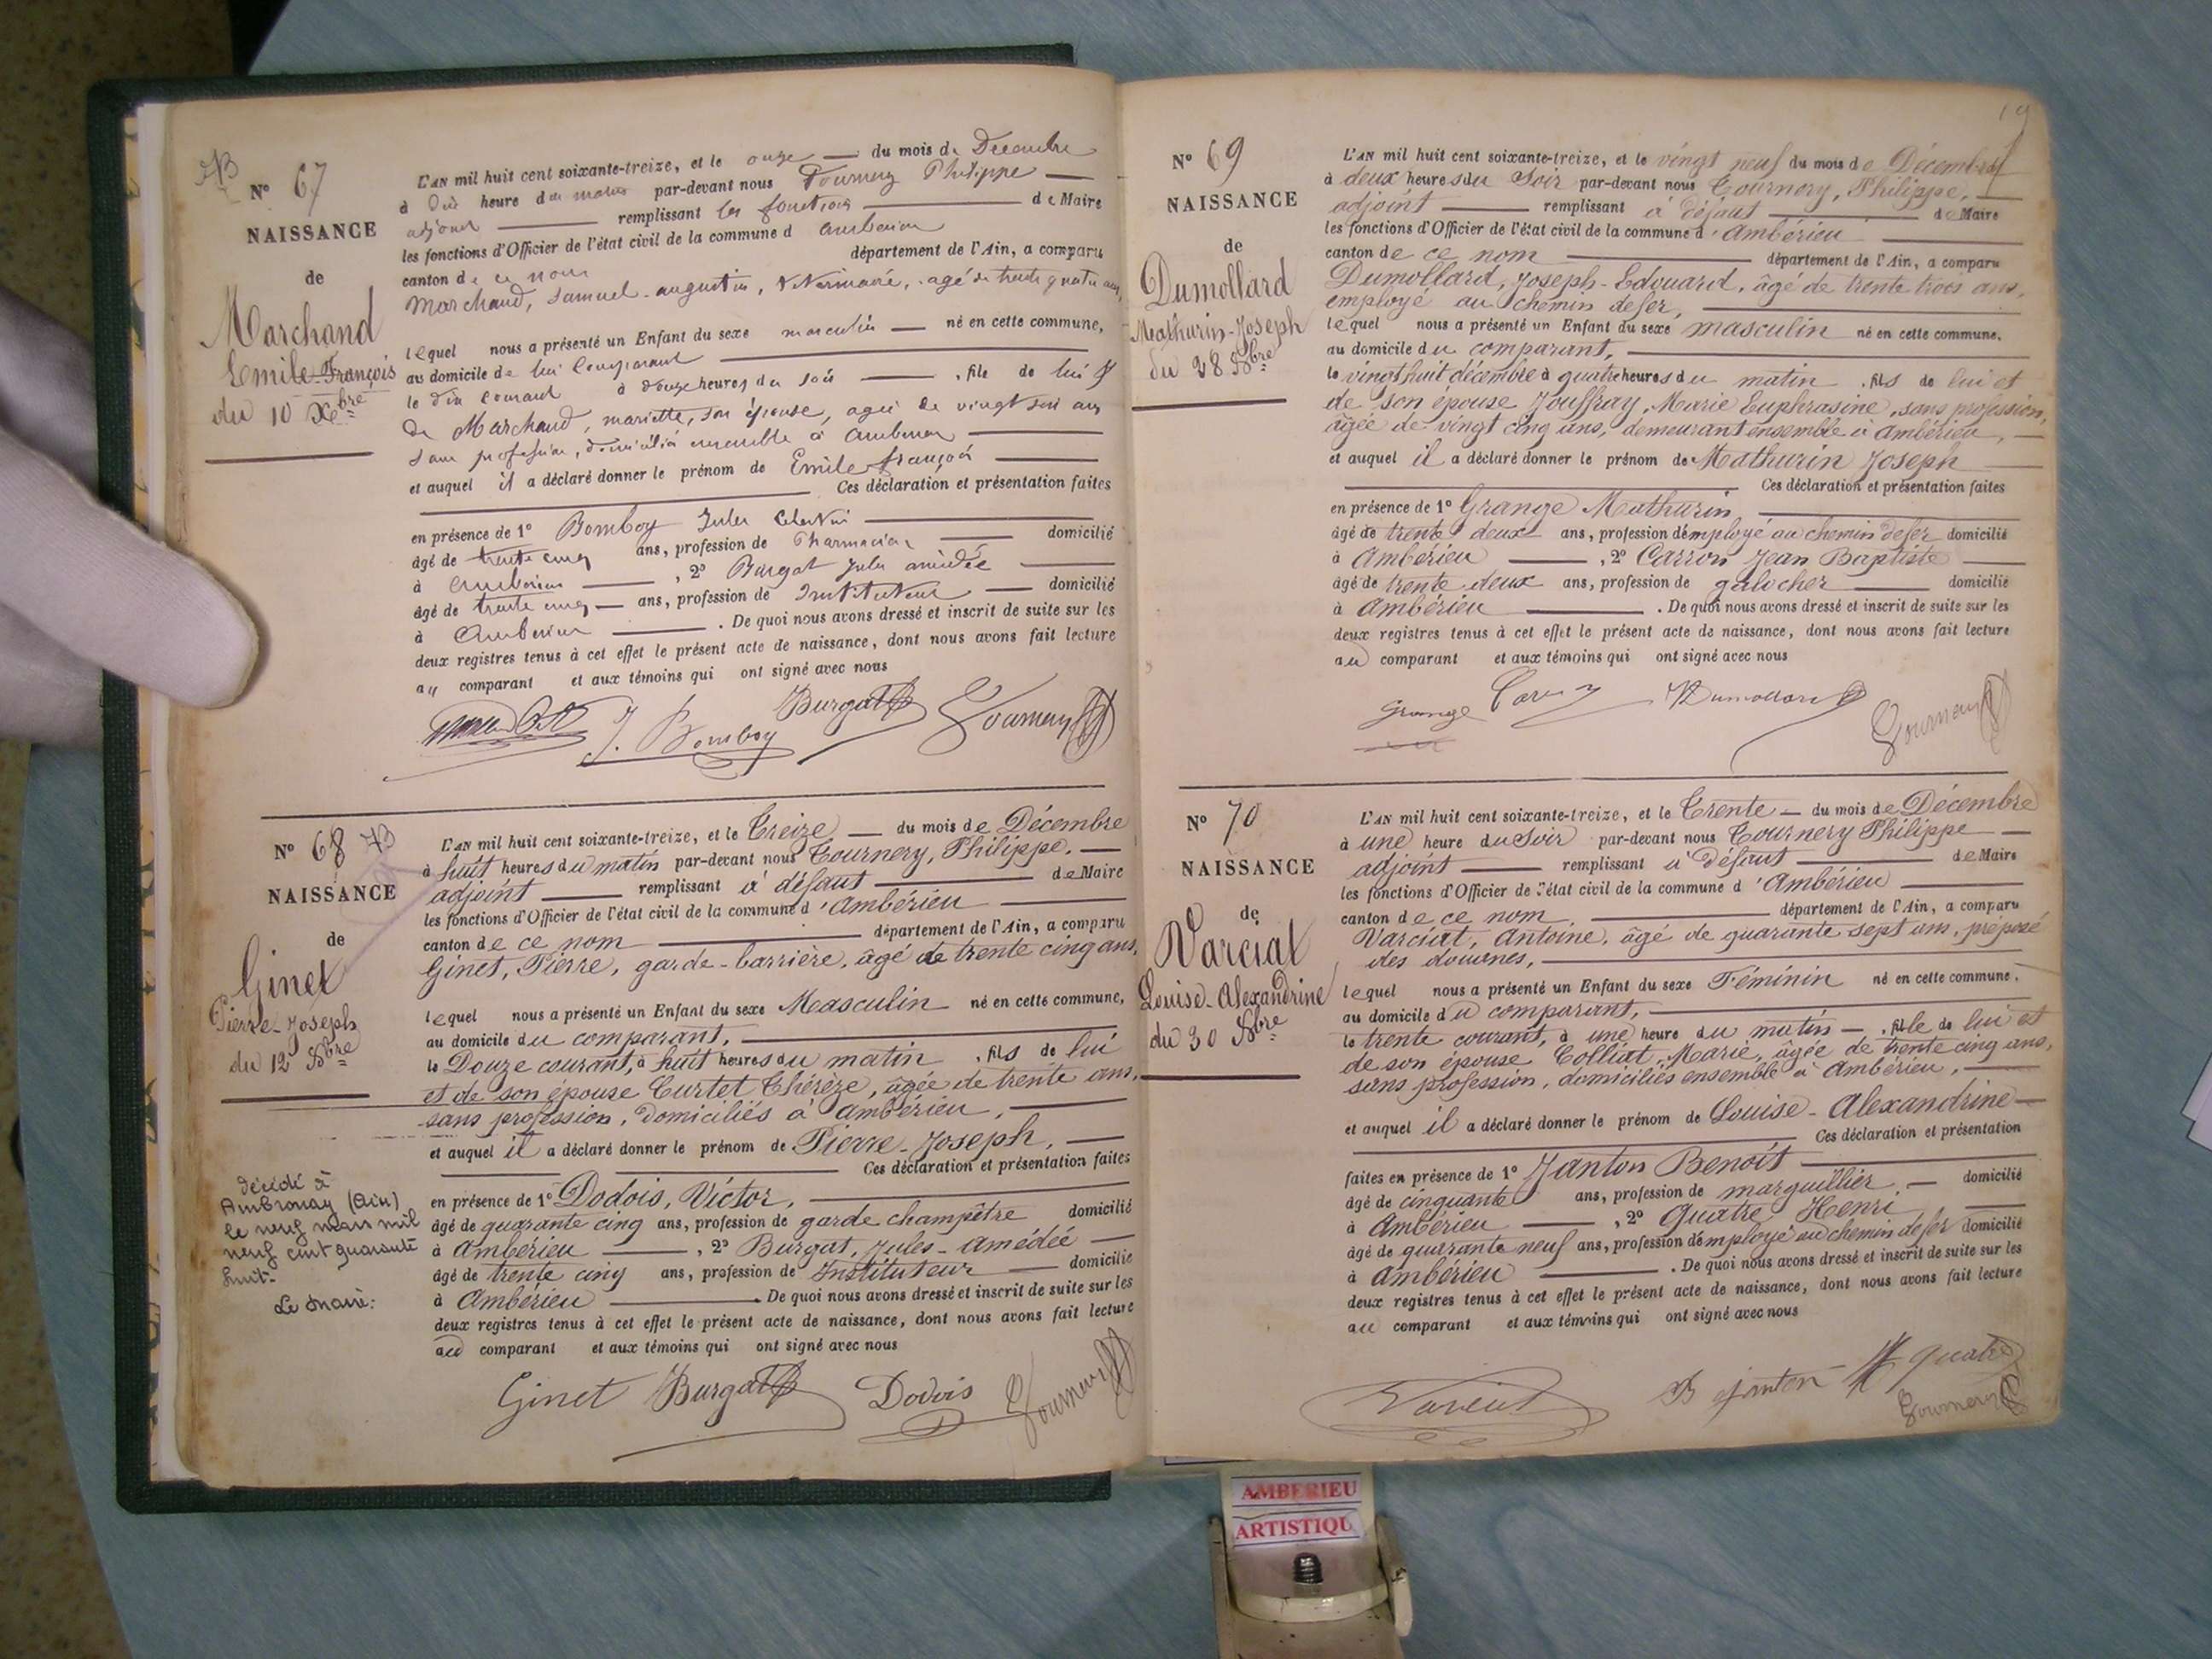 N° 67
NAISSANCE
de
Marchand
Emile-François
du 10 Xbre
L'AN mil huit cent soixante-treize, et le onze — du mois de Décembre
à dix heure du matin par-devant nous Tournery Philippe —
adjoint — remplissant les fonctions — de Maire
les fonctions d'Officier de l'état civil de la commune d Ambérieu
canton de ce nom département de l'Ain, a comparu
Marchand, Samuel-augustin, Vétérinaire, agé de trente quatre ans,
lequel nous a présenté un Enfant du sexe masculin — né en cette commune,
au domicile de lui Comparant —
le dix courant à douze heures du soir — , fils de lui &
de Marchand, mariette, son épouse, agée de vingt six ans
sans profession, domiciliés ensemble à Ambérieu —
et auquel il a déclaré donner le prénom de Emile françois —
Ces déclaration et présentation faites
en présence de 1° Bomboy Jules Célestin —
âgé de trente cinq ans, profession de Pharmacien — domicilié
à Ambérieu — , 2° Burgat Jules amédée —
âgé de trente cinq — ans, profession de Instituteur — domicilié
à Ambérieu — . De quoi nous avons dressé et inscrit de suite sur les
deux registres tenus à cet effet le présent acte de naissance, dont nous avons fait lecture
au comparant et aux témoins qui ont signé avec nous
J. Bomboy Burgat Tournery
N° 68
NAISSANCE
de
Ginet
Pierre-Joseph
du 12 Xbre
décédé à
Ambronay (Ain)
le neuf mars mil
neuf cent quarante
huit.
Le Maire:
L'AN mil huit cent soixante-treize, et le Treize — du mois de Décembre
à huit heures du matin par-devant nous Tournery, Philippe, —
adjoint — remplissant à défaut — de Maire
les fonctions d'Officier de l'état civil de la commune d'Ambérieu —
canton de ce nom — département de l'Ain, a comparu
Ginet, Pierre, garde-barrière, âgé de trente cinq ans,
lequel nous a présenté un Enfant du sexe Masculin né en cette commune,
au domicile du comparant, —
le Douze courant, à huit heures du matin , fils de lui
et de son épouse Curtet Thérèze, âgée de trente ans,
sans profession, Domiciliés à Ambérieu, —
et auquel il a déclaré donner le prénom de Pierre-Joseph, —
Ces déclaration et présentation faites
en présence de 1° Dodois, Victor, —
âgé de quarante cinq ans, profession de garde champêtre domicilié
à Ambérieu — , 2° Burgat, Jules-Amédée —
âgé de trente cinq ans, profession de Instituteur — domicilié
à Ambérieu — . De quoi nous avons dressé et inscrit de suite sur les
deux registres tenus à cet effet le présent acte de naissance, dont nous avons fait lecture
au comparant et aux témoins qui ont signé avec nous
Ginet Burgat Dodois Tournery
19
N° 69
NAISSANCE
de
Dumollard
Mathurin-Joseph
du 28 Xbre
L'AN mil huit cent soixante-treize, et le vingt neuf du mois de Décembre
à deux heures du Soir par-devant nous Tournery, Philippe, —
adjoint — remplissant à défaut — de Maire
les fonctions d'Officier de l'état civil de la commune d'Ambérieu —
canton de ce nom — département de l'Ain, a comparu
Dumollard, Joseph-Edouard, âgé de trente trois ans,
employé au chemin de fer, —
lequel nous a présenté un Enfant du sexe masculin né en cette commune,
au domicile du comparant, —
le vingt huit décembre à quatre heures du matin , fils de lui et
de son épouse Jouffray, Marie Euphrasine, sans profession,
âgée de vingt cinq ans, demeurant ensemble à Ambérieu, —
et auquel il a déclaré donner le prénom de Mathurin Joseph —
Ces déclaration et présentation faites
en présence de 1° Grange Mathurin —
âgé de trente deux ans, profession d'employé au chemin de fer domicilié
à Ambérieu — , 2° Carron Jean Baptiste —
âgé de trente deux ans, profession de galocher — domicilié
à Ambérieu — . De quoi nous avons dressé et inscrit de suite sur les
deux registres tenus à cet effet le présent acte de naissance, dont nous avons fait lecture
au comparant et aux témoins qui ont signé avec nous
Grange Dumollard Tournery
N° 70
NAISSANCE
de
Varciat
Louise-Alexandrine
du 30 Xbre
L'AN mil huit cent soixante-treize, et le Trente — du mois de Décembre
à une heure du Soir par-devant nous Tournery Philippe —
adjoint — remplissant à défaut — de Maire
les fonctions d'Officier de l'état civil de la commune d'Ambérieu —
canton de ce nom, — département de l'Ain, a comparu
Varciat, Antoine, âgé de quarante sept ans, préposé
des douanes, —
lequel nous a présenté un Enfant du sexe Féminin né en cette commune,
au domicile du comparant, —
le trente courant, à une heure du matin — , fille de lui et
de son épouse Colliat, Marie, âgée de trente cinq ans,
sans profession, domiciliés ensemble à Ambérieu, —
et auquel il a déclaré donner le prénom de Louise-Alexandrine —
Ces déclaration et présentation
faites en présence de 1° Janton Benoît —
âgé de cinquante ans, profession de marguillier, — domicilié
à Ambérieu — , 2° Quatre Henri, —
âgé de quarante neuf ans, profession d'employé au chemin de fer domicilié
à Ambérieu — . De quoi nous avons dressé et inscrit de suite sur les
deux registres tenus à cet effet le présent acte de naissance, dont nous avons fait lecture
au comparant et aux témoins qui ont signé avec nous
Varciat B Janton H Quatre
Tournery
AMBERIEU
ARTISTIQU